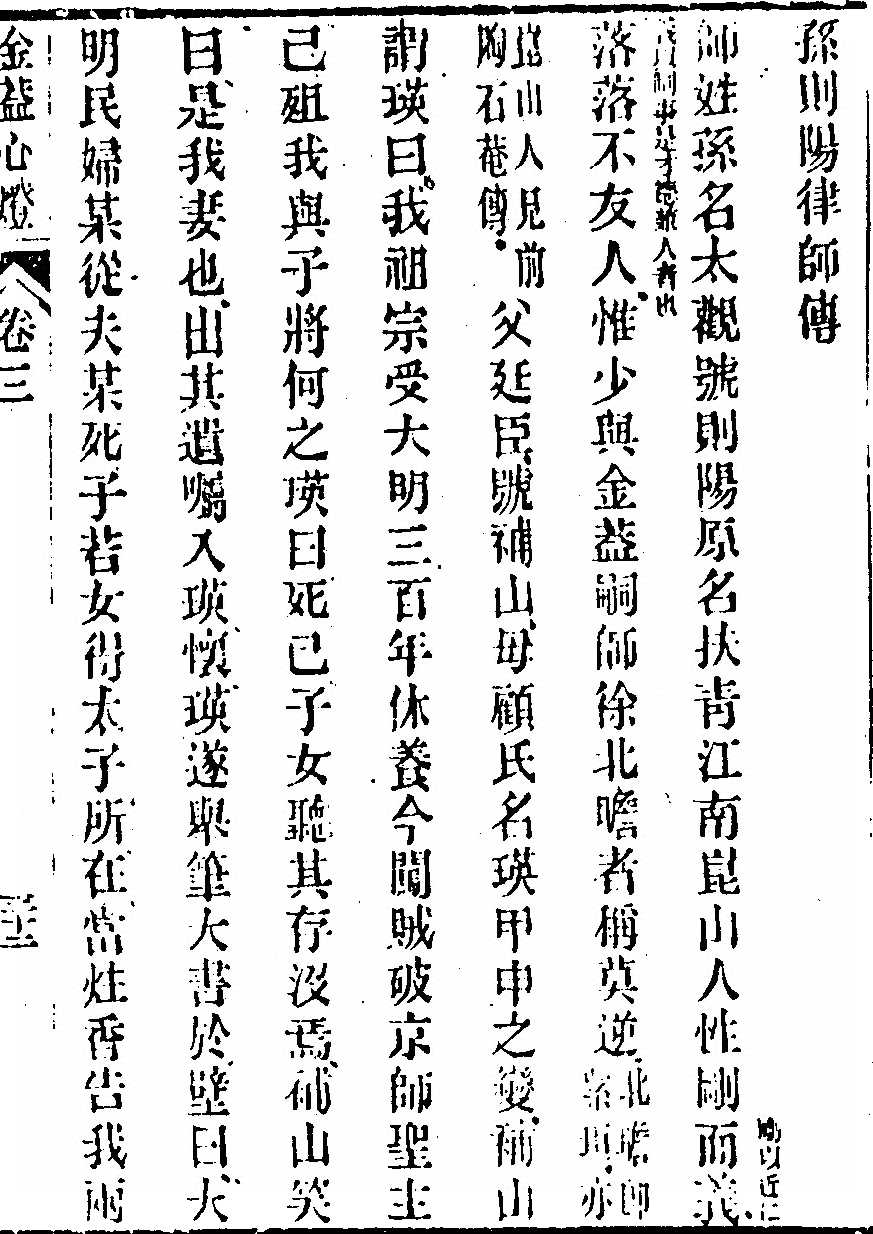 孫則陽律師傳
師姓孫名太觀號則陽原名扶靑江南崑山人性剛而義
剛以近仁
義質嗣事是才德兼人者也
落落不友人惟少與金葢嗣師徐北瞻者稱莫逆
北瞻師
名珏亦
崑山人見前
陶石菴傳
父廷臣號補山母顧氏名瑛甲申之變補山
謂瑛曰我祖宗受大明三百年休養今闖賊破京師聖主
已殂我與子將何之瑛曰死已子女聽其存沒焉補山笑
曰是我妻也出其遺囑入瑛懷瑛遂舉筆大書於壁曰大
明民婦某從夫某死子若女得太子所在當炷香告我兩
金葢心燈
卷三